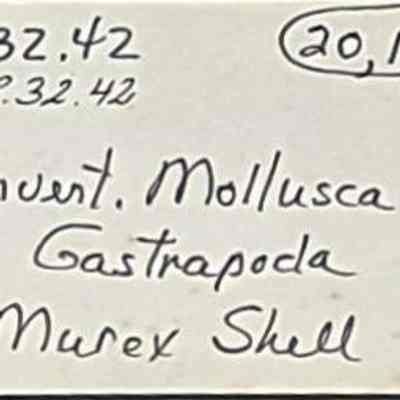 32.42 20,1
2.32.42
nvert. Mollusca
Gastrapoda
Murex Shell